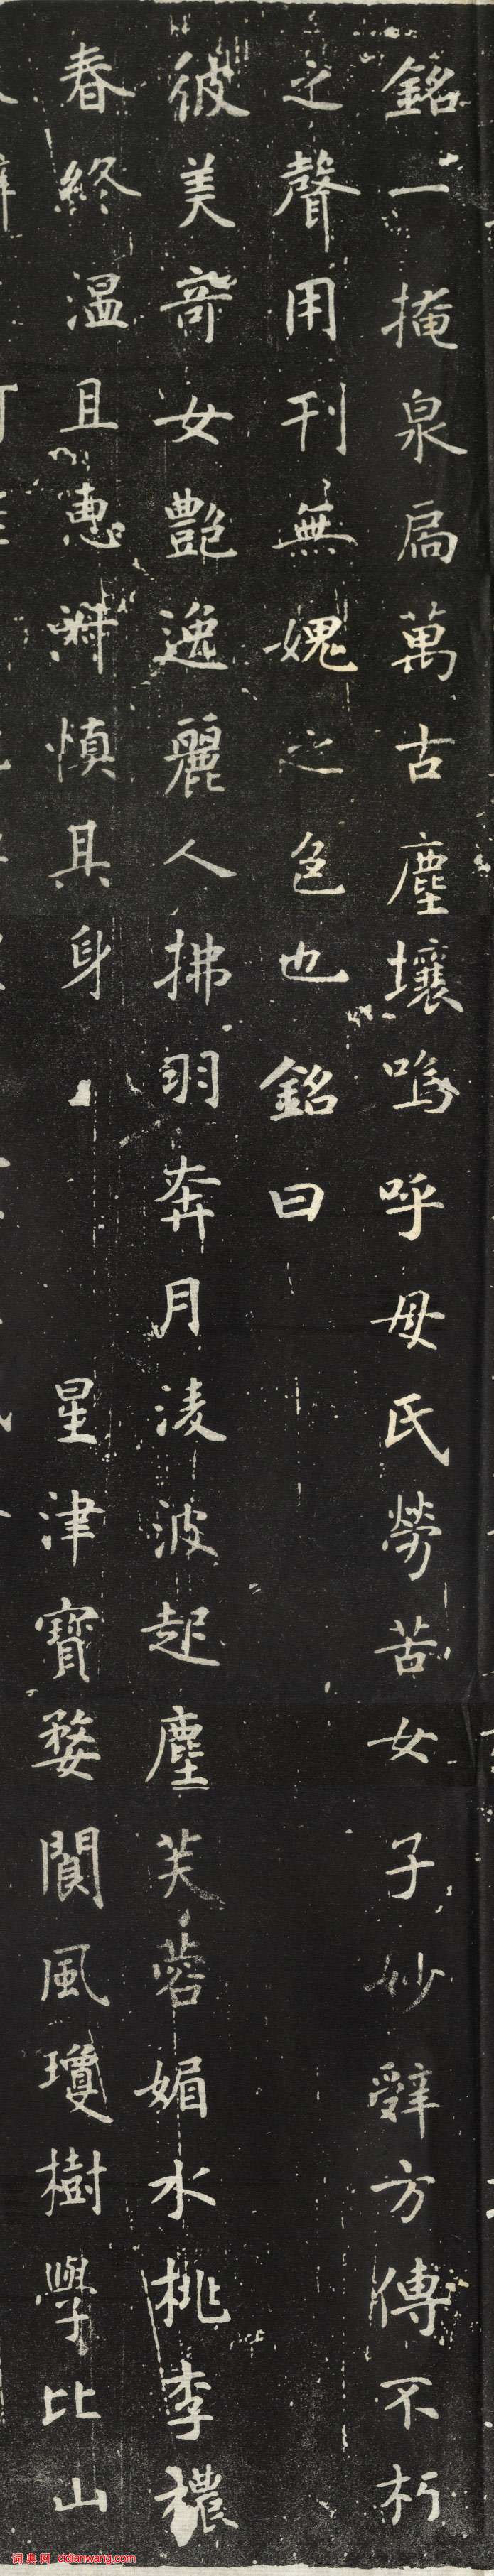 銘一掩泉扃萬古塵壤嗚呼母氏勞苦女子妙辭方傳不朽
之聲用刊無媿之色也銘曰
彼美奇女艷逸麗人拂羽奔月淩波起塵芙蓉媚水桃李穠
春終温且惠淑慎其身星津寶婺閬風瓊樹學比山
词典网 cidianwang.com